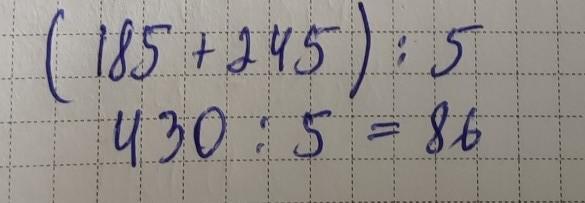 (185 + 245) : 5
430 : 5 = 86